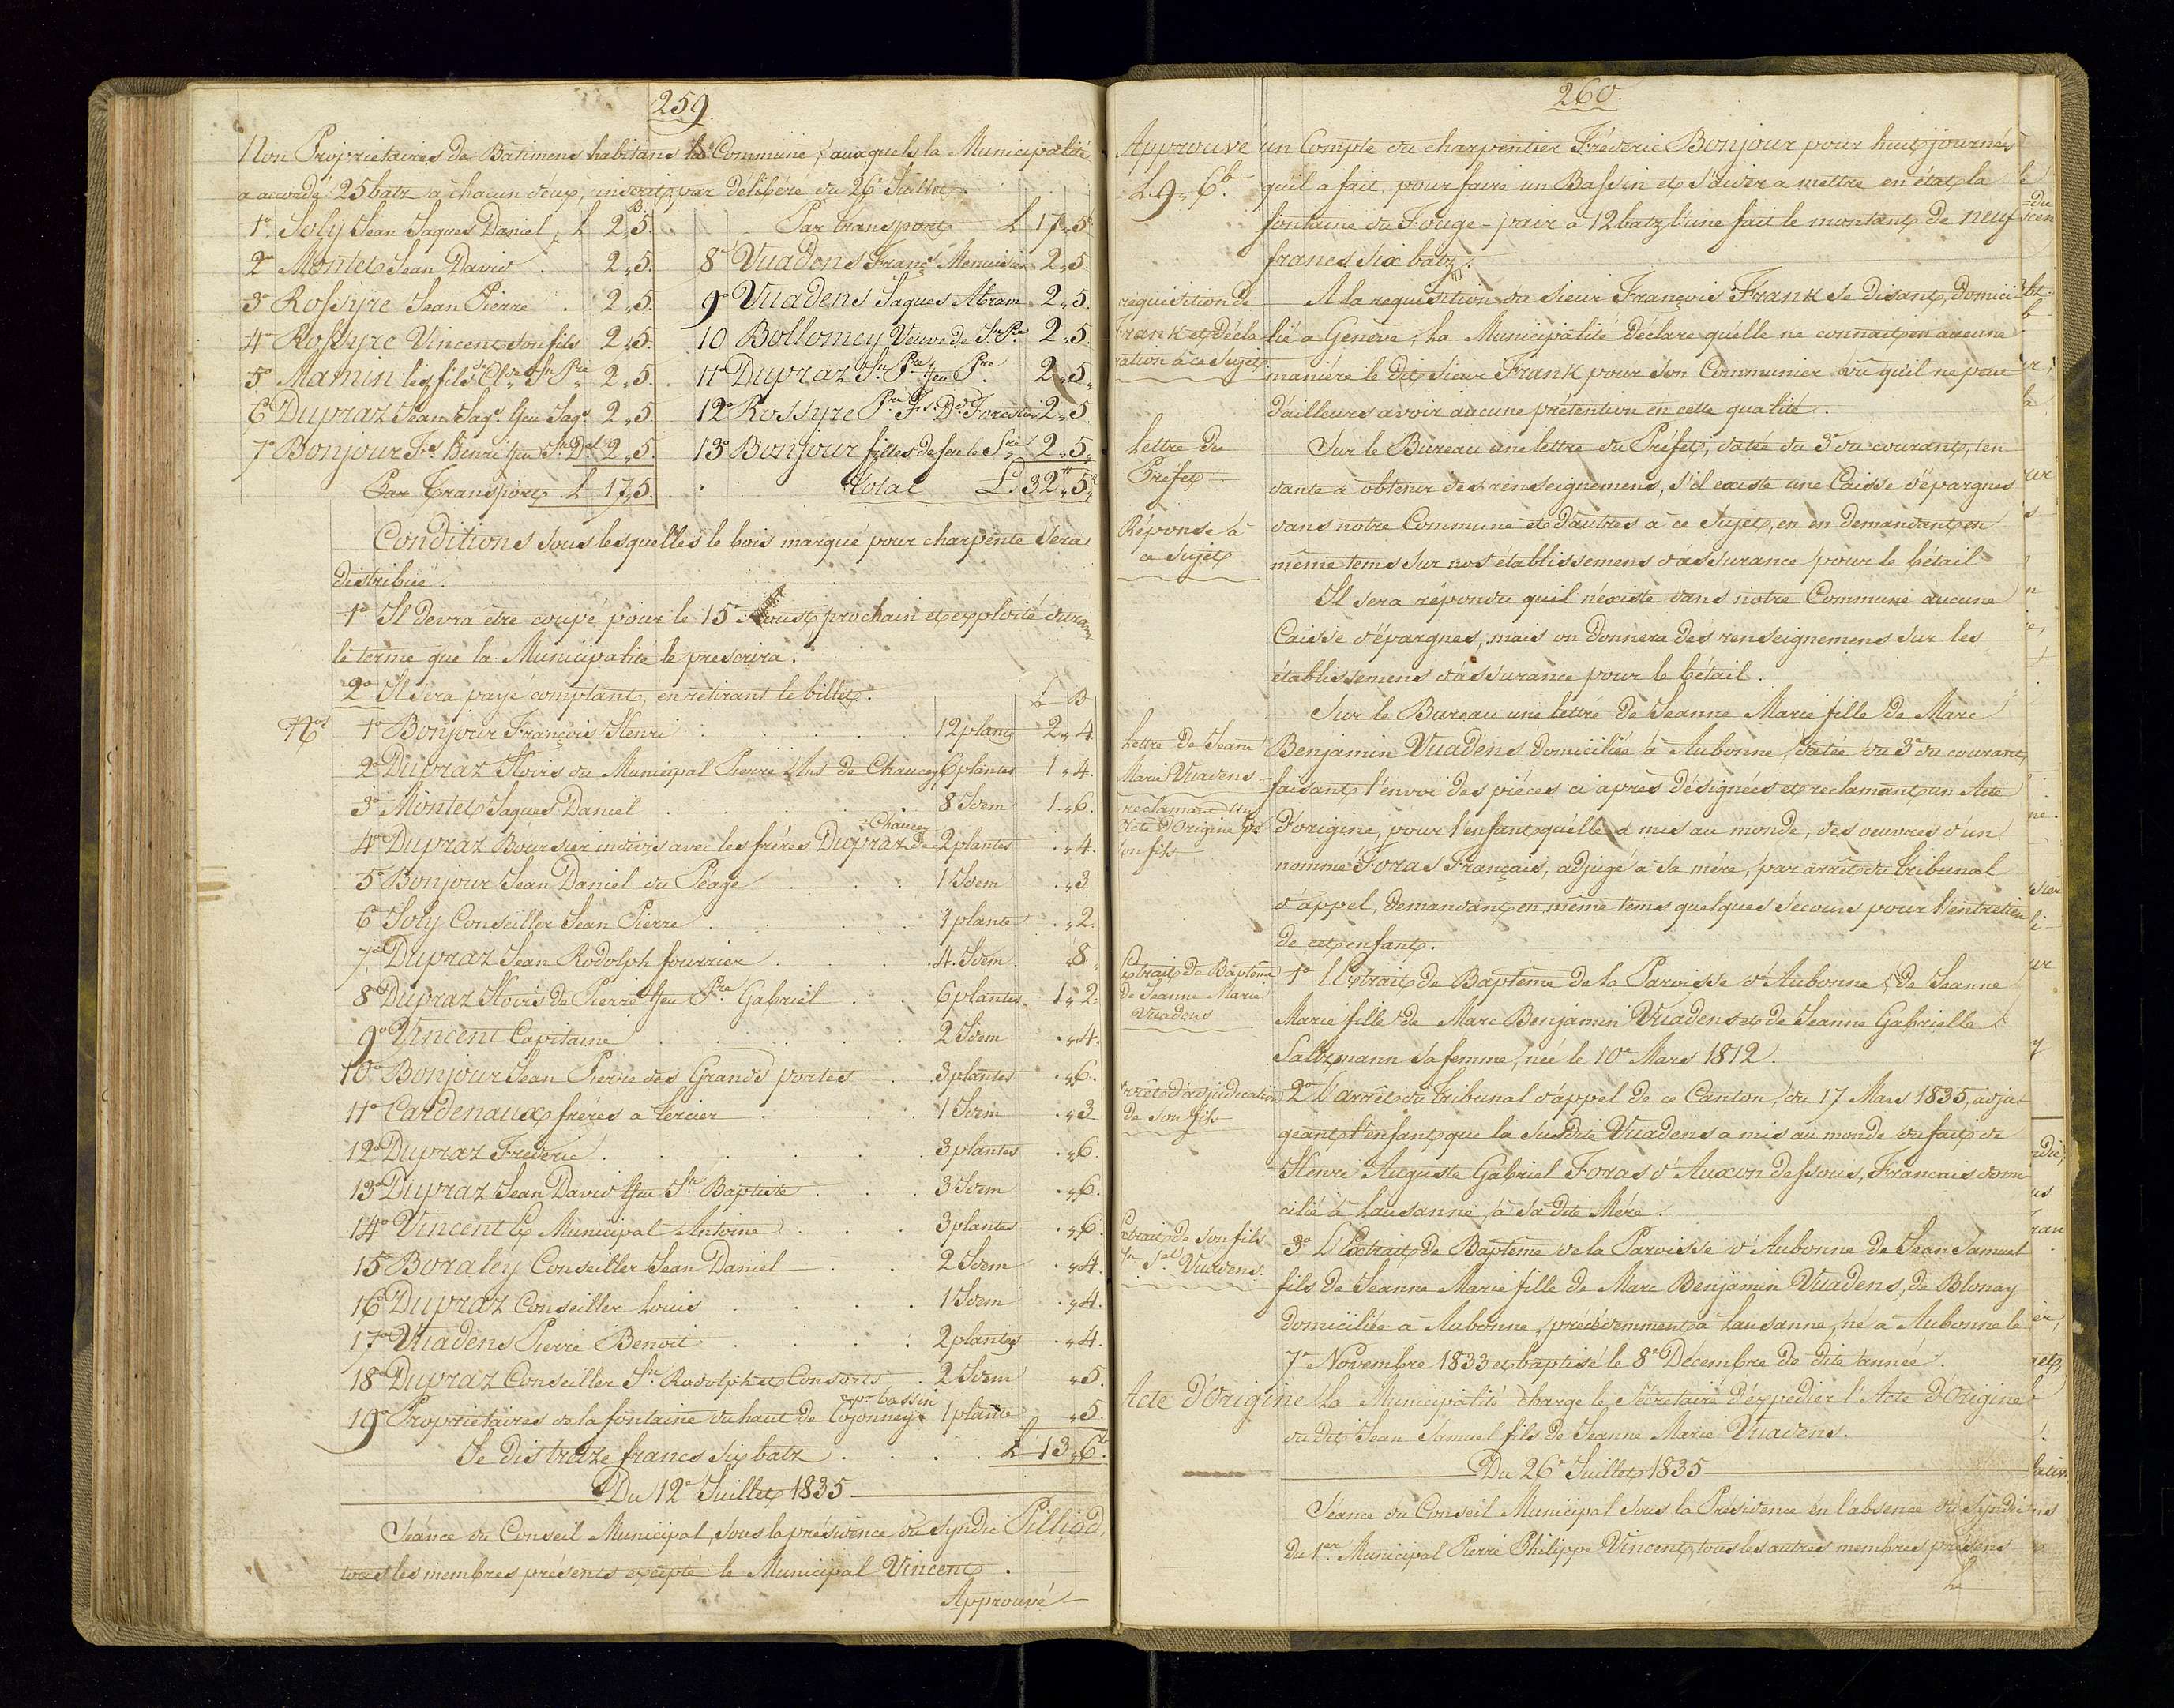 259.
Non Propriétaires de Bâtimens habitans la Commune, auxquels la Municipalité
a accordé 25 batz à chacun d'eux, inscrits par délibéré du 26e Juillet.
B.
1º Joly Jean Jaques Daniel, L 2„5.
2º Montet Jean David . 2„5.
3º Rossyre Jean Pierre . 2„5.
4º Rossyre Vincent son fils 2„5.
5º Mamin les fils de Cl.de Jn Pre 2„5.
6º Dupraz Jean Jaqs. feu Jaqs. 2„5.
7º Bonjour Fs. Henri feu Jn Dl. 2„5.
Par Transport L 17„5.
Par transport L 17„5.
8º Vuadens Franç.s Menuisier 2„5.
9º Vuadens Jaques Abram 2„5.
10 Bollomey Veuve de Jn Pre. 2„5.
11º Dupraz Jn Pre feu Pre. 2„5„
12º Rossyre Pre Fs. Dd Forestier 2„5.
13º Bonjour filles de feu le Jn 2„5„
total L 32„5„
Conditions sous lesquelles le bois marqué pour charpente sera
distribué.
1º Il devra être coupé pour le 15e Aoust prochain et exploité durant
le terme que la Municipalité le prescrira.
2º Il sera payé comptant, en retirant le billet.
L B
Nos 1º Bonjour François Henri . 12 plants 2„4.
2º Dupraz Hoirs du Municipal Pierre Ls de Chaucey 6 plantes 1„4.
3º Montet Jaques Daniel . 8 Idem 1„6.
=Chaucey
4º Dupraz Boursier indivis avec les frères Dupraz de 2 plantes . „4.
5º Bonjour Jean Daniel du Péage . 1 Idem . „3.
6º Joly Conseiller Jean Pierre . 1 plante . „2.
7º Dupraz Jean Rodolph fourrier . 4. Idem . „8„
8º Dupraz Hoirs de Pierre feu Pre Gabriel . 6 plantes. 1„2
9º Vincent Capitaine . 2 Idem . „4.
10º Bonjour Jean Pierre des Grands portes . 3 plantes . „6.
11º Cardenaux frères à Tercier . 1 Idem . „3
12º Dupraz Frédéric . 3 plantes . „6.
13º Dupraz Jean David feu Jn Baptiste . 3 Idem . „6.
14º Vincent Ex Municipal Antoine . 3 plantes . „6
15º Boraley Conseiller Jean Daniel . 2 Idem . „4.
16º Dupraz Conseiller Louis . 1 Idem . „4.
17º Vuadens Pierre Benoit . 2 plantes . „4.
18º Dupraz Conseiller Jn Rodolph et Consorts . 2 Idem „5.
pr bassin
19º Propriétaires de la fontaine du haut de Cojonnex 1 plante „5.
Je dis treize francs six batz . L 13„6.
Du 12e Juillet 1835
Séance du Conseil Municipal, sous la présidence du Syndic Pilliod,
tous les membres présents excepté le Municipal Vincent.
Approuvé
260.
Approuvé un Compte du charpentier Fréderic Bonjour pour huit journées
L. 9„6.b qu'il a fait, pour faire un Bassin et s'aider a mettre en état la
fontaine du Fouge- pair à 12 batz l'une fait le montant de neuf
francs six batz.
requisition de A la requisition du sieur François Frank se disant, domici
Frank et décla lié à Genève, la Municipalité Déclare qu'elle ne connait en aucune
ration à ce Sujet manière le dit sieur Frank pour son Communier vû qu'il ne peut
d'ailleurs avoir aucune prétention en cette qualité.
Lettre du Sur le Bureau une lettre du Préfet, datée du 3e du courant, ten
Préfet dante à obtenir des renseignemens, s'il existe une Caisse d'épargnes
Réponse à dans notre Commune et d'autres à ce sujet, en en demandant en
ce Sujet même tems sur nos établissemens d'assurance pour le bétail
Il sera répondu qu'il n'existe dans notre Commune aucune
Caisse d'épargnes, mais on donnera des renseignemens sur les
établissemens d'assurance pour le bétail.
Sur le Bureau une lettre de Jeanne Marie fille de Marc
Lettre de Jeane Benjamin Vuadens domiciliée à Aubonne, datée du 3e du courant,
Marie Vuadens faisant l'envoi des pièces ci après désignées et reclamant un Acte
reclamant un
Acte d'Origine pr d'origine, pour l'enfant qu'elle a mis au monde, des oeuvres d'un
son fils nommé Foras Français, adjugé à sa mère, par arrêt du tribunal
d'appel, demandant en même tems quelques sécours pour l'entretien
de cet enfant.
Extrait de Baptême 1º l'Extrait de Baptême de la Paroisse d'Aubonne, de Jeanne
de Jeanne Marie Marie fille de Marc Benjamin Vuadens et de Jeanne Gabrielle
Vuadens Saltzmann sa femme, née le 10e Mars 1812.
Arrêt d'adjudication 2º L'arrêt du Tribunal d'appel de ce Canton, du 17 Mars 1835, adju-
de son fils geant l'enfant que la susdite Vuadens a mis au monde du fait de
Henri Auguste Gabriel Foras d'Auxon dessous, Francais domi
cilié à Lausanne, à sa dite Mére.
Extrait de son fils 3º L'Extrait de Baptême de la Paroisse d'Aubonne de Jean Samuel
Jn Sel Vuadens. fils de Jeanne Marie fille de Marc Benjamin Vuadens, de Blonay
domiciliée à Aubonne, précédemment à Lausanne, né à Aubonne le
7e Novembre 1833 et baptisé le 8e Décembre de dite année.
Acte d'Origine La Municipalité charge le Sécretaire d'expedier l'Acte d'Origine
du dit Jean Samuel fils de Jeanne Marie Vuadens.
Du 26e Juillet 1835
Séance du Conseil Municipal sous la Présidence en l'absence du Syndic
du 1er. Municipal Pierre Philippe Vincent, tous les autres membres présens
Le